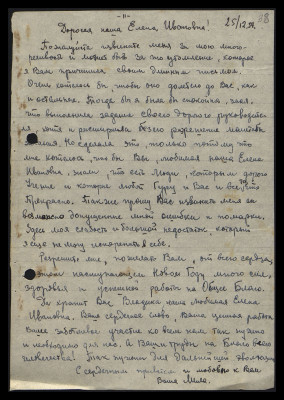 -11-
25/12.54.
Дорогая наша Елена Ивановна!
Пожалуйста извините меня за мою много-
речивость и может быть за то утомление, которое
я Вам причинила своим длинным письмом.
Очень хотелось бы, чтобы оно дошло до Вас, как
и остальные. Тогда бы я была бы спокойна, зная,
что выполнила задание своего дорогого руководите-
ля, хотя и расширила без его разрешения
Сделала это только потому что
мне хотелось, что бы Вы, любимая наша Елена
Ивановна, знали, что есть люди, которым дорого
Учение и которые любят Гуру и Вас и все, что
Прекрасно. Также прошу Вас извинить меня за
возможно допущенные мной ошибки и помарки.
моя слабость и большой недостаток, который
я еще не могу искоренить в себе.
Разрешите мне, пожелать Вам, от всего сердца,
в этом наступающем Новом Году много сил,
здоровья и успешной работы на Общее Благо.
Да хранит Вас Владыка наша любимая Елена
Ивановна. Ваше сердечное слово, Ваша ценная работа,
Ваше заботливое участие ко всем нам так нужно
и необходимо для нас. А Ваши труды на Благо всего
человечества! Так нужны для дальнейшей эволюции.
С сердечным приветом и любовью к Вам
Ваша